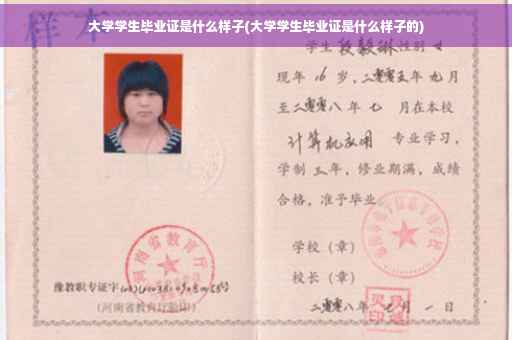 大学学生毕业证是什么样子(大学学生毕业证是什么样子的)
样本
学生 段毅琳 性别 女
现年 16 岁，二零零五年 九月
至二零零八年 七 月在本校
计算机应用 专业学习，
学制 三年，修业期满，成绩
合格，准予毕业
学校（章）
校长（章）
二零零八年 七月 一日
河南省教育厅
豫教职专证字
号
（河南省教育厅验印）